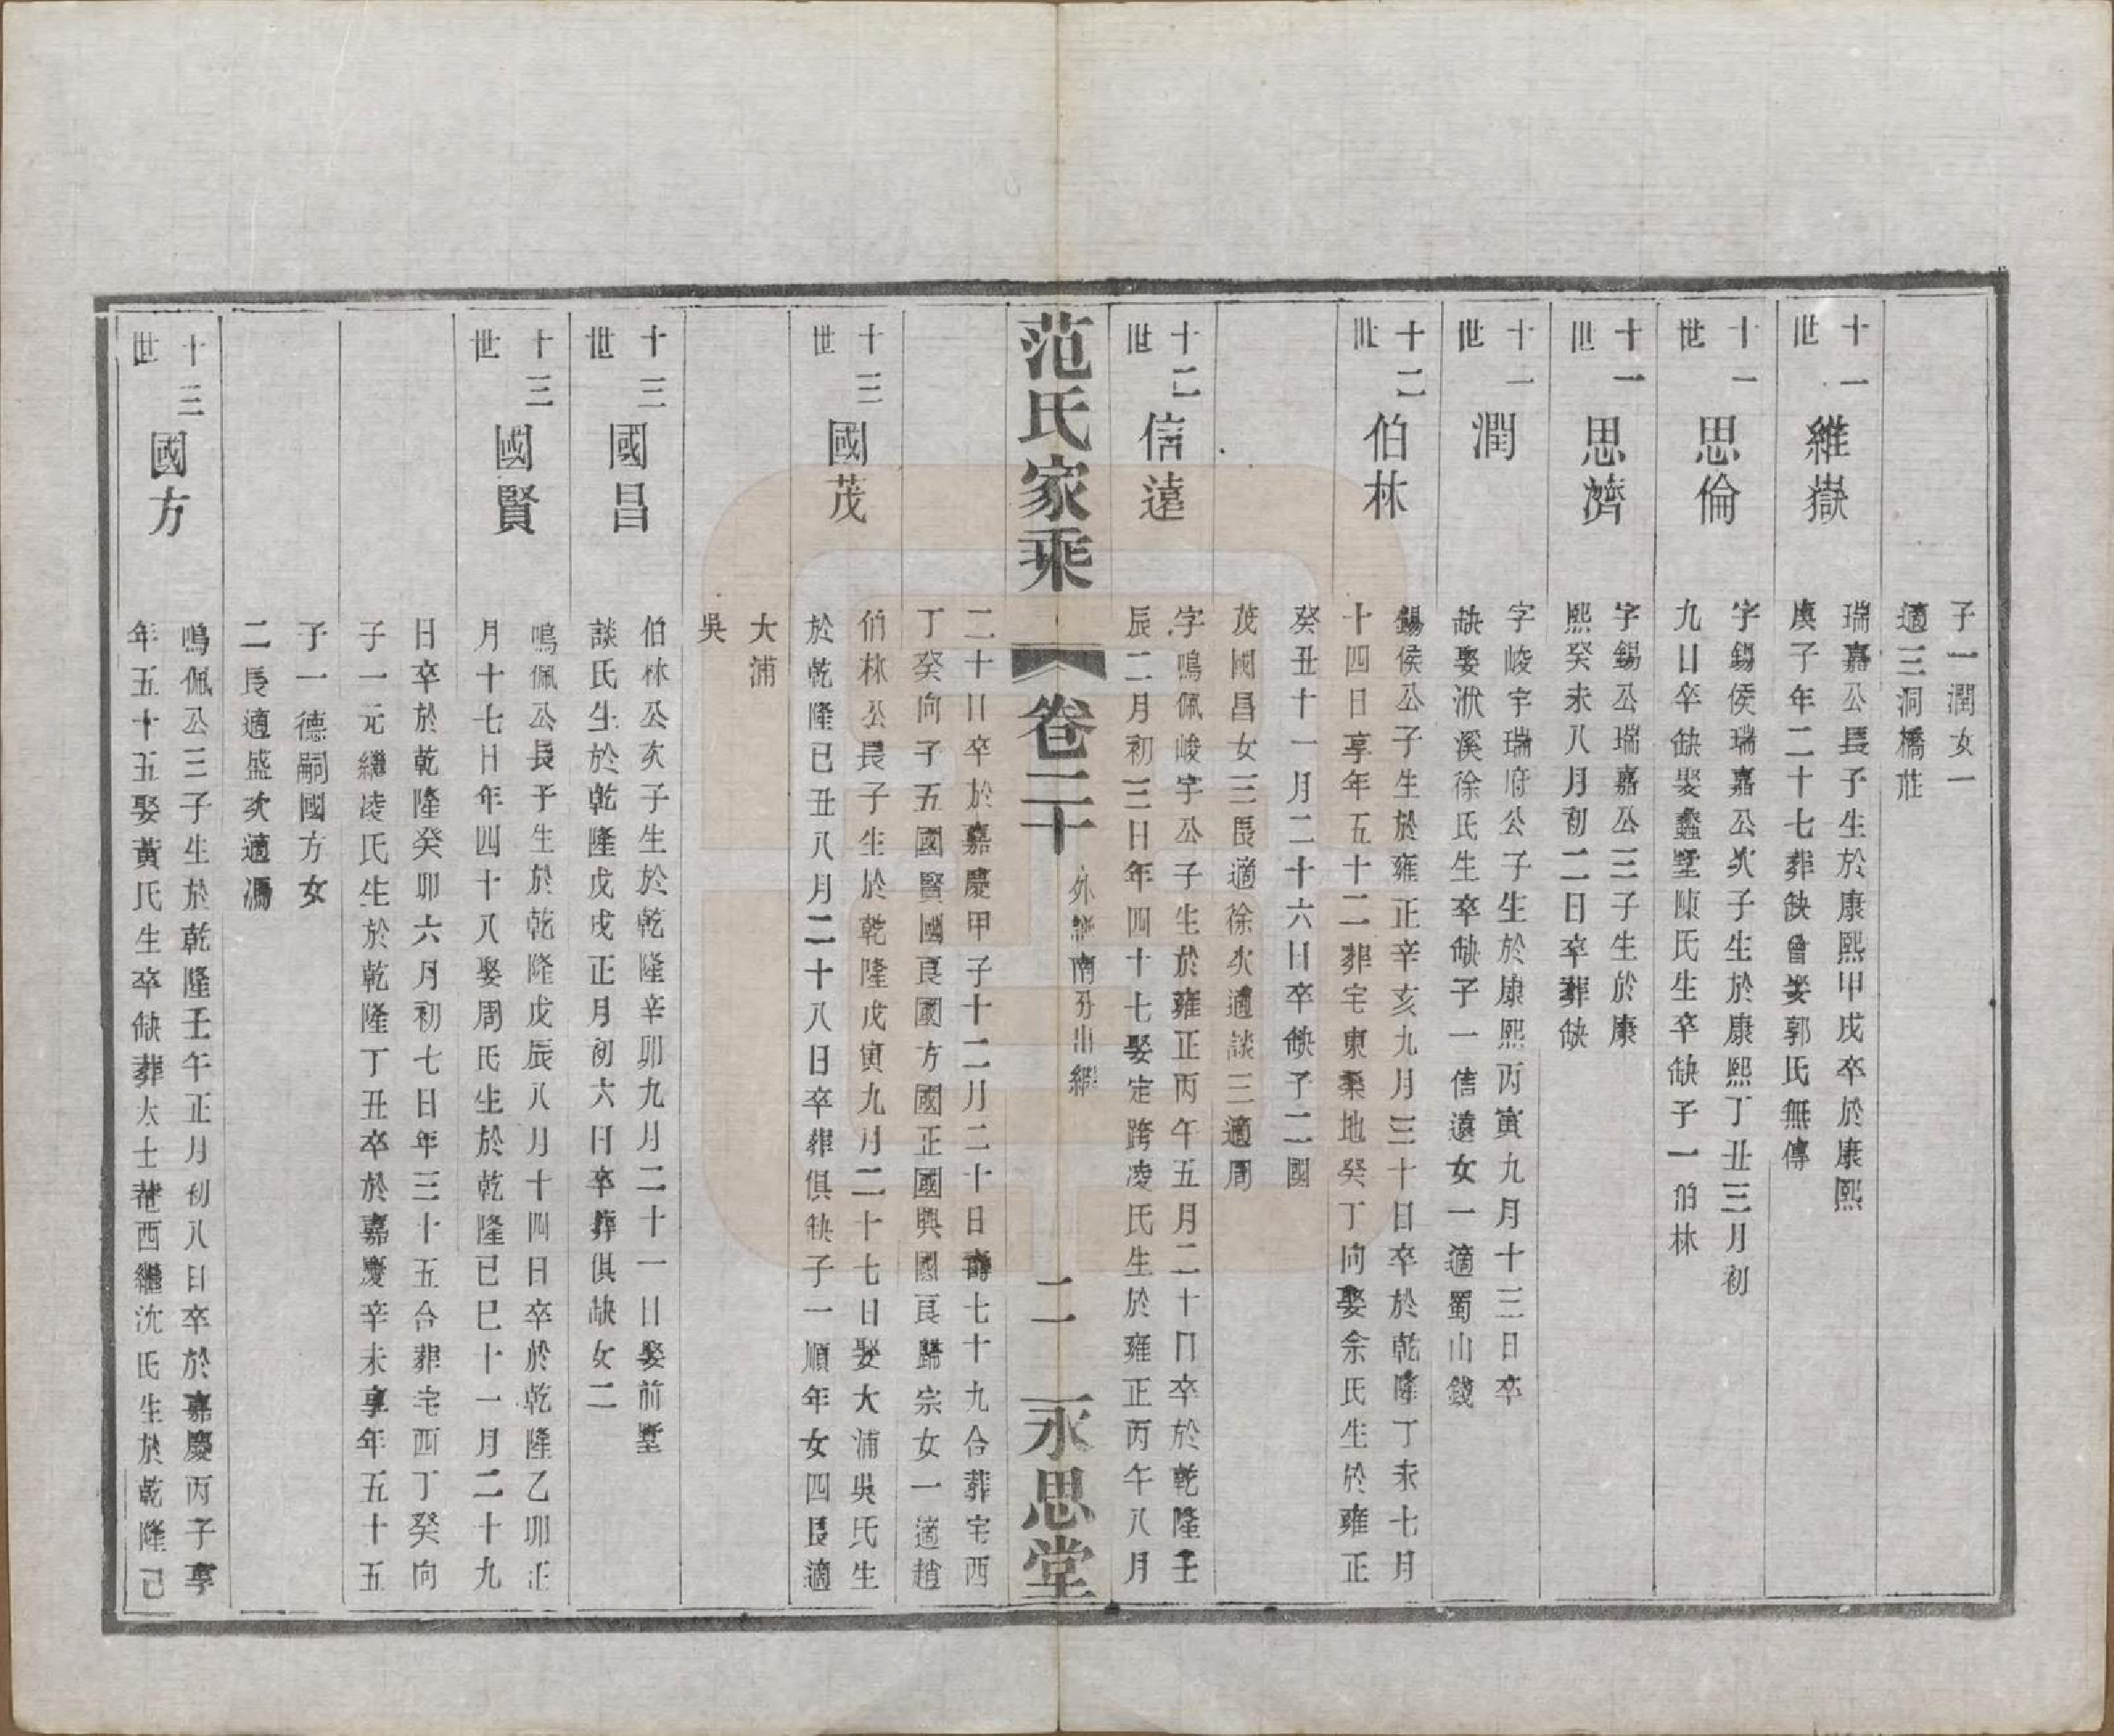 子一潤女一
適三洞橋莊
十一世
維嶽
瑞嘉公長子生於康熙甲戌卒於康熙
庚子年二十七葬缺會娶郭氏無傳
十一世
思倫
字錫侯瑞嘉公次子生於康熙丁丑三月初
九日卒缺娶蠡墅陳氏生卒缺子一伯林
十一世
思濟
字錫公瑞嘉公三子生於康
熙癸未八月初二日卒葬缺
十一世
潤
字峻宇瑞府公子生於康熙丙寅九月十三日卒
缺娶洑溪徐氏生卒缺子一信遠女一適蜀山錢
十二世
伯林
錫侯公子生於雍正辛亥九月三十日卒於乾隆丁未七月
十四日享年五十二葬宅東桑地癸丁向娶余氏生於雍正
癸丑十一月二十六日卒缺子二國
茂國昌女三長適徐次適談三適周
十二世
信遠
字鳴佩峻宇公子生於雍正丙午五月二十日卒於乾隆壬
辰二月初三日年四十七娶定跨凌氏生於雍正丙午八月
范氏家乘
卷二十
外譜南分山網
二
永思堂
二十日卒於嘉慶甲子十二月二十日壽七十九合葬宅西
丁癸向子五國賢國良國方國正國興國良歸宗女一適趙
十三世
國茂
伯林公長子生於乾隆戊寅九月二十七日娶大浦吳氏生
於乾隆己丑八月二十八日卒葬俱缺子一順年女四長適
大浦
吳
十三世
國昌
伯林公次子生於乾隆辛卯九月二十一日娶前墅
談氏生於乾隆戊戌正月初六日卒葬俱缺女二
十三世
國賢
鳴佩公長子生於乾隆戊辰八月十四日卒於乾隆乙卯正
月十七日年四十八娶周氏生於乾隆己巳十一月二十九
日卒於乾隆癸卯六月初七日年三十五合葬宅西丁癸向
子一元繼凌氏生於乾隆丁丑卒於嘉慶辛未享年五十五
子一德嗣國方女
二長適盛次適馮
十三世
國方
鳴佩公三子生於乾隆壬午正月初八日卒於嘉慶丙子享
年五十五娶黃氏生卒缺葬大士菴西繼沈氏生於乾隆己